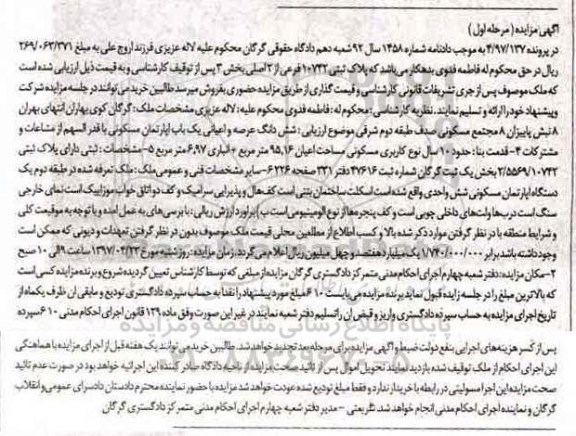 آگهی مزایده ( مرحله اول )
در پرونده ۴/۹۷/۱۳۷ به موجب دادنامه شماره ۱۴۵۸ سال ۹۲ شعبه دهم دادگاه حقوقی گرگان محکوم علیه لاله عزیزی فرزند اروج علی به مبلغ ۲۶۹/۰۶۳/۳۷۱
ریال در حق محکوم له فاطمه فنوی بدهکار می باشد که پلاک ثبتی ۱۰۷۴۲ فرعی از ۲ اصلی بخش ۳ پس از توقیف کارشناسی و به قیمت ذیل ارزیابی شده است
که ملک موصوف پس از جری تشریفات قانونی کارشناسی و قیمت گذاری از طریق مزایده حضوری بفروش میرسد طالبین خرید می توانند در جلسه مزایده شرکت
و پیشنهاد خود را ارائه و تسلیم نمایند. نظریه کارشناسی: محکوم له: فاطمه فنوی محکوم علیه: لاله عزیزی مشخصات ملک: گرگان کوی بهاران انتهای بهران
۸ نبش پاییزان ۸ مجتمع مسکونی صدف طبقه دوم شرقی موضوع ارزیابی: شش دانگ عرصه و اعیانی یک باب اپارتمان مسکونی با قدر السهم از مشاعات و
مشترکات ۴- قدمت بنا: حدود ۱۰ سال نوع کاربری مسکونی مساحت اعیان ۹۵٫۱۶ متر مربع + انباری ۶٫۹۷ متر مربع ۵- مشخصات: ثبتی دارای پلاک ثبتی
۲/۵۵۶۹/۱۰۷۴۲ بخش یک ثبت گرگان شماره ثبت ۴۷۶۱۶ دفتر ۳۳۱ صفحه ۲۲۶ ۶- سایر مشخصات فنی و عمومی ملک: ملک تعرفه شده در طبقه دوم یک
دستگاه اپارتمان مسکونی شش واحدی واقع شده است اسکلت ساختمان بتنی است کف هال و پذیرایی سرامیک و کف دو اتاق خواب موزاییک است نمای خارجی
سنگ است درب ها و لت های داخلی چوبی است و کف پنجره ها از نوع الومینیومی است ب) براورد ارزش ریالی: با بررسی های به عمل امده و با توجه به موقعیت کلی
و شرایط منطقه با در نظر گرفتن موارد ذکر شده بالا و کسب اطلاع از مطلعین محلی قیمت ملک موصوف بدون در نظر گرفتن تعهدات و دیونی که ممکن است
وجود داشته باشد برابر ۱/۷۴۰/۰۰۰/۰۰۰ یک میلیارد هفتصد و چهل میلیون ریال اعلام می گردد. زمان مزایده: روز شنبه مورخ ۱۳۹۷/۰۴/۲۳ ساعت ۹ الی ۱۰ صبح
۲- مکان مزایده: دفتر شعبه چهارم اجرای احکام مدنی متمرکز دادگستری گرگان مزایده از مبلغی که توسط کارشناس تعیین گردیده شروع و برنده مزایده کسی است
که بالاترین مبلغ را در جلسه رایده قبول نماید برنده مزایده می بایست ۱۰٪ مبلغ مورد پیشنهاد را نقدا به حساب سپرده دادگستری تودیع و مابقی ان ظرف یکماه از
تاریخ اجرای مزایده به حساب سپرده دادگستری واریز و قبض ان را تسلیم دفتر شعبه نمایند در غیر این صورت وفق ماده ۱۳۹ قانون اجرای احکام مدنی ۱۰٪ سپرده
پس از کسر هزینه های اجرایی بنفع دولت ضبط و آگهی مزایده برای مرحله بعد تجدید خواهد شد. طالبین خرید می توانند یک هفته قبل از اجرای مزایده با هماهنگی
این اجرای احکام از ملک توقیف شده بازدید نمایند تحویل اموال پس از تائید صحت مزایده از ناحیه دادگاه صادر کننده این اجرائیه خواهد بود در صورت عدم تائید
صحت مزایده این اجرا مسولیتی در رابطه با خریدار ندارد و فقط مبلغ تودیع شده عودت خواهد شد مزایده با حضور نماینده محترم دادستان دادسرای عمومی و انقلاب
گرگان و نماینده اجرای احکام مدنی انجام خواهد شد. - مدیر دفتر شعبه چهارم اجرای احکام مدنی متمرکز دادگستری گرگان
پایگاه اطلاع رسانی مناقصه و مزایده